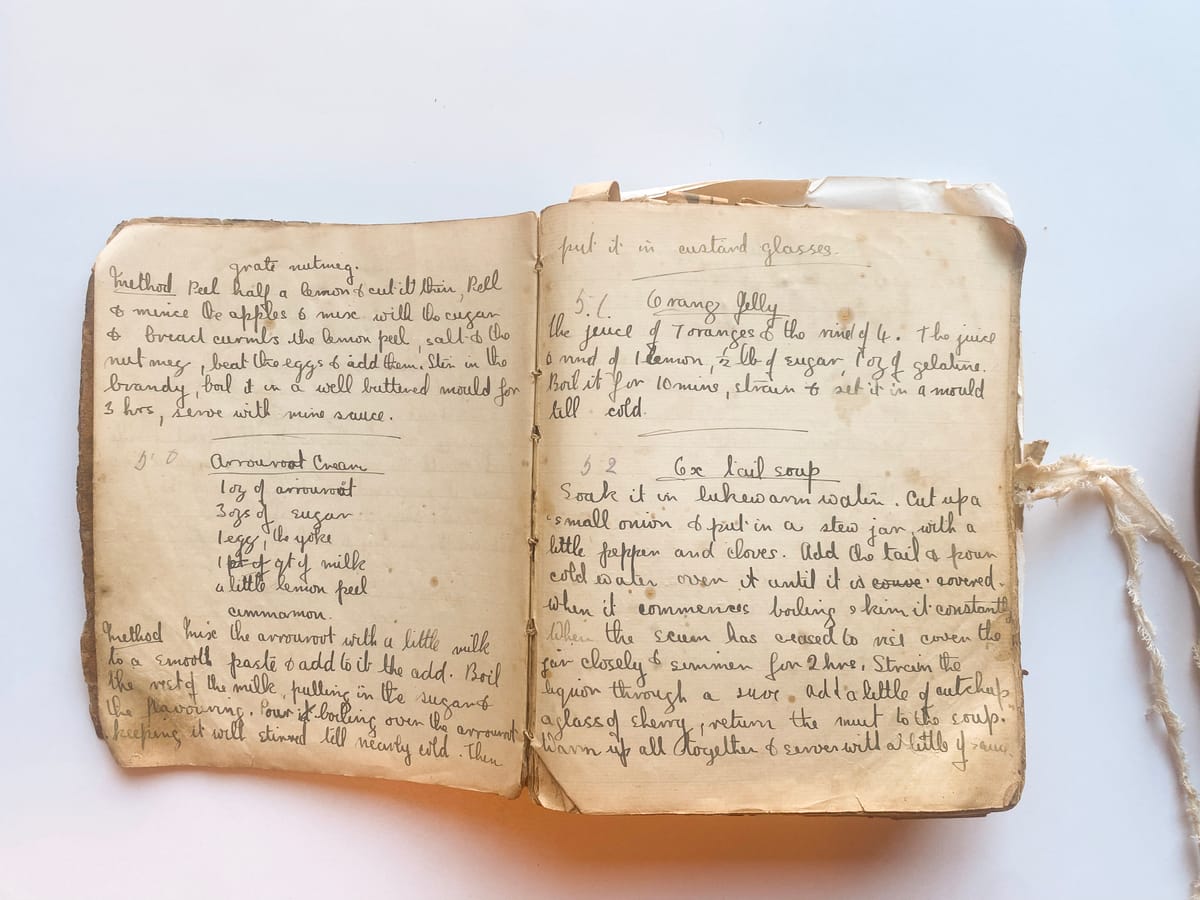 grate nutmeg.
Method Peel half a lemon & cut it thin, Pell
& mince the apples & mix with the sugar
& bread curmbs the lemon peel, salt & the
nutmeg, beat the eggs & add them. Stir in the
brandy, boil it in a well buttered mould for
3 hrs, serve with wine sauce.
50 Arrouroot Cream
1 oz of arrouroot
3 ozs of sugar
1 egg, the yoke
1 pt of qt of milk
a little lemon peel
cinnamon.
Method Mix the arrouroot with a little milk
to a smooth paste & add to it the add. Boil
the rest of the milk, putting in the sugar &
the flavouring. Pour it boiling over the arrouroot
keeping it well stirred till nearly cold. Then
put it in custard glasses.
51 Orang Jelly
the jeuce of 7 oranges & the rind of 4. The juice
& rind of 1 lemon, ½ lb of sugar, 1 oz of gelatine.
Boil it for 10 mins, strain & set it in a mould
till cold.
52 Ox tail soup
Soak it in lukewarm water. Cut up a
small onion & put in a stew jar, with a
little pepper and cloves. Add the tail & pour
cold water over it until it is couve covered.
When it commences boiling skim it constantly
When the scum has ceased to rise cover the
jar closely & simmer for 2 hrs. Strain the
liquor through a sieve add a little of cutchup
a glass of sherry, return the meat to the soup.
Warm up all together & server with a little of